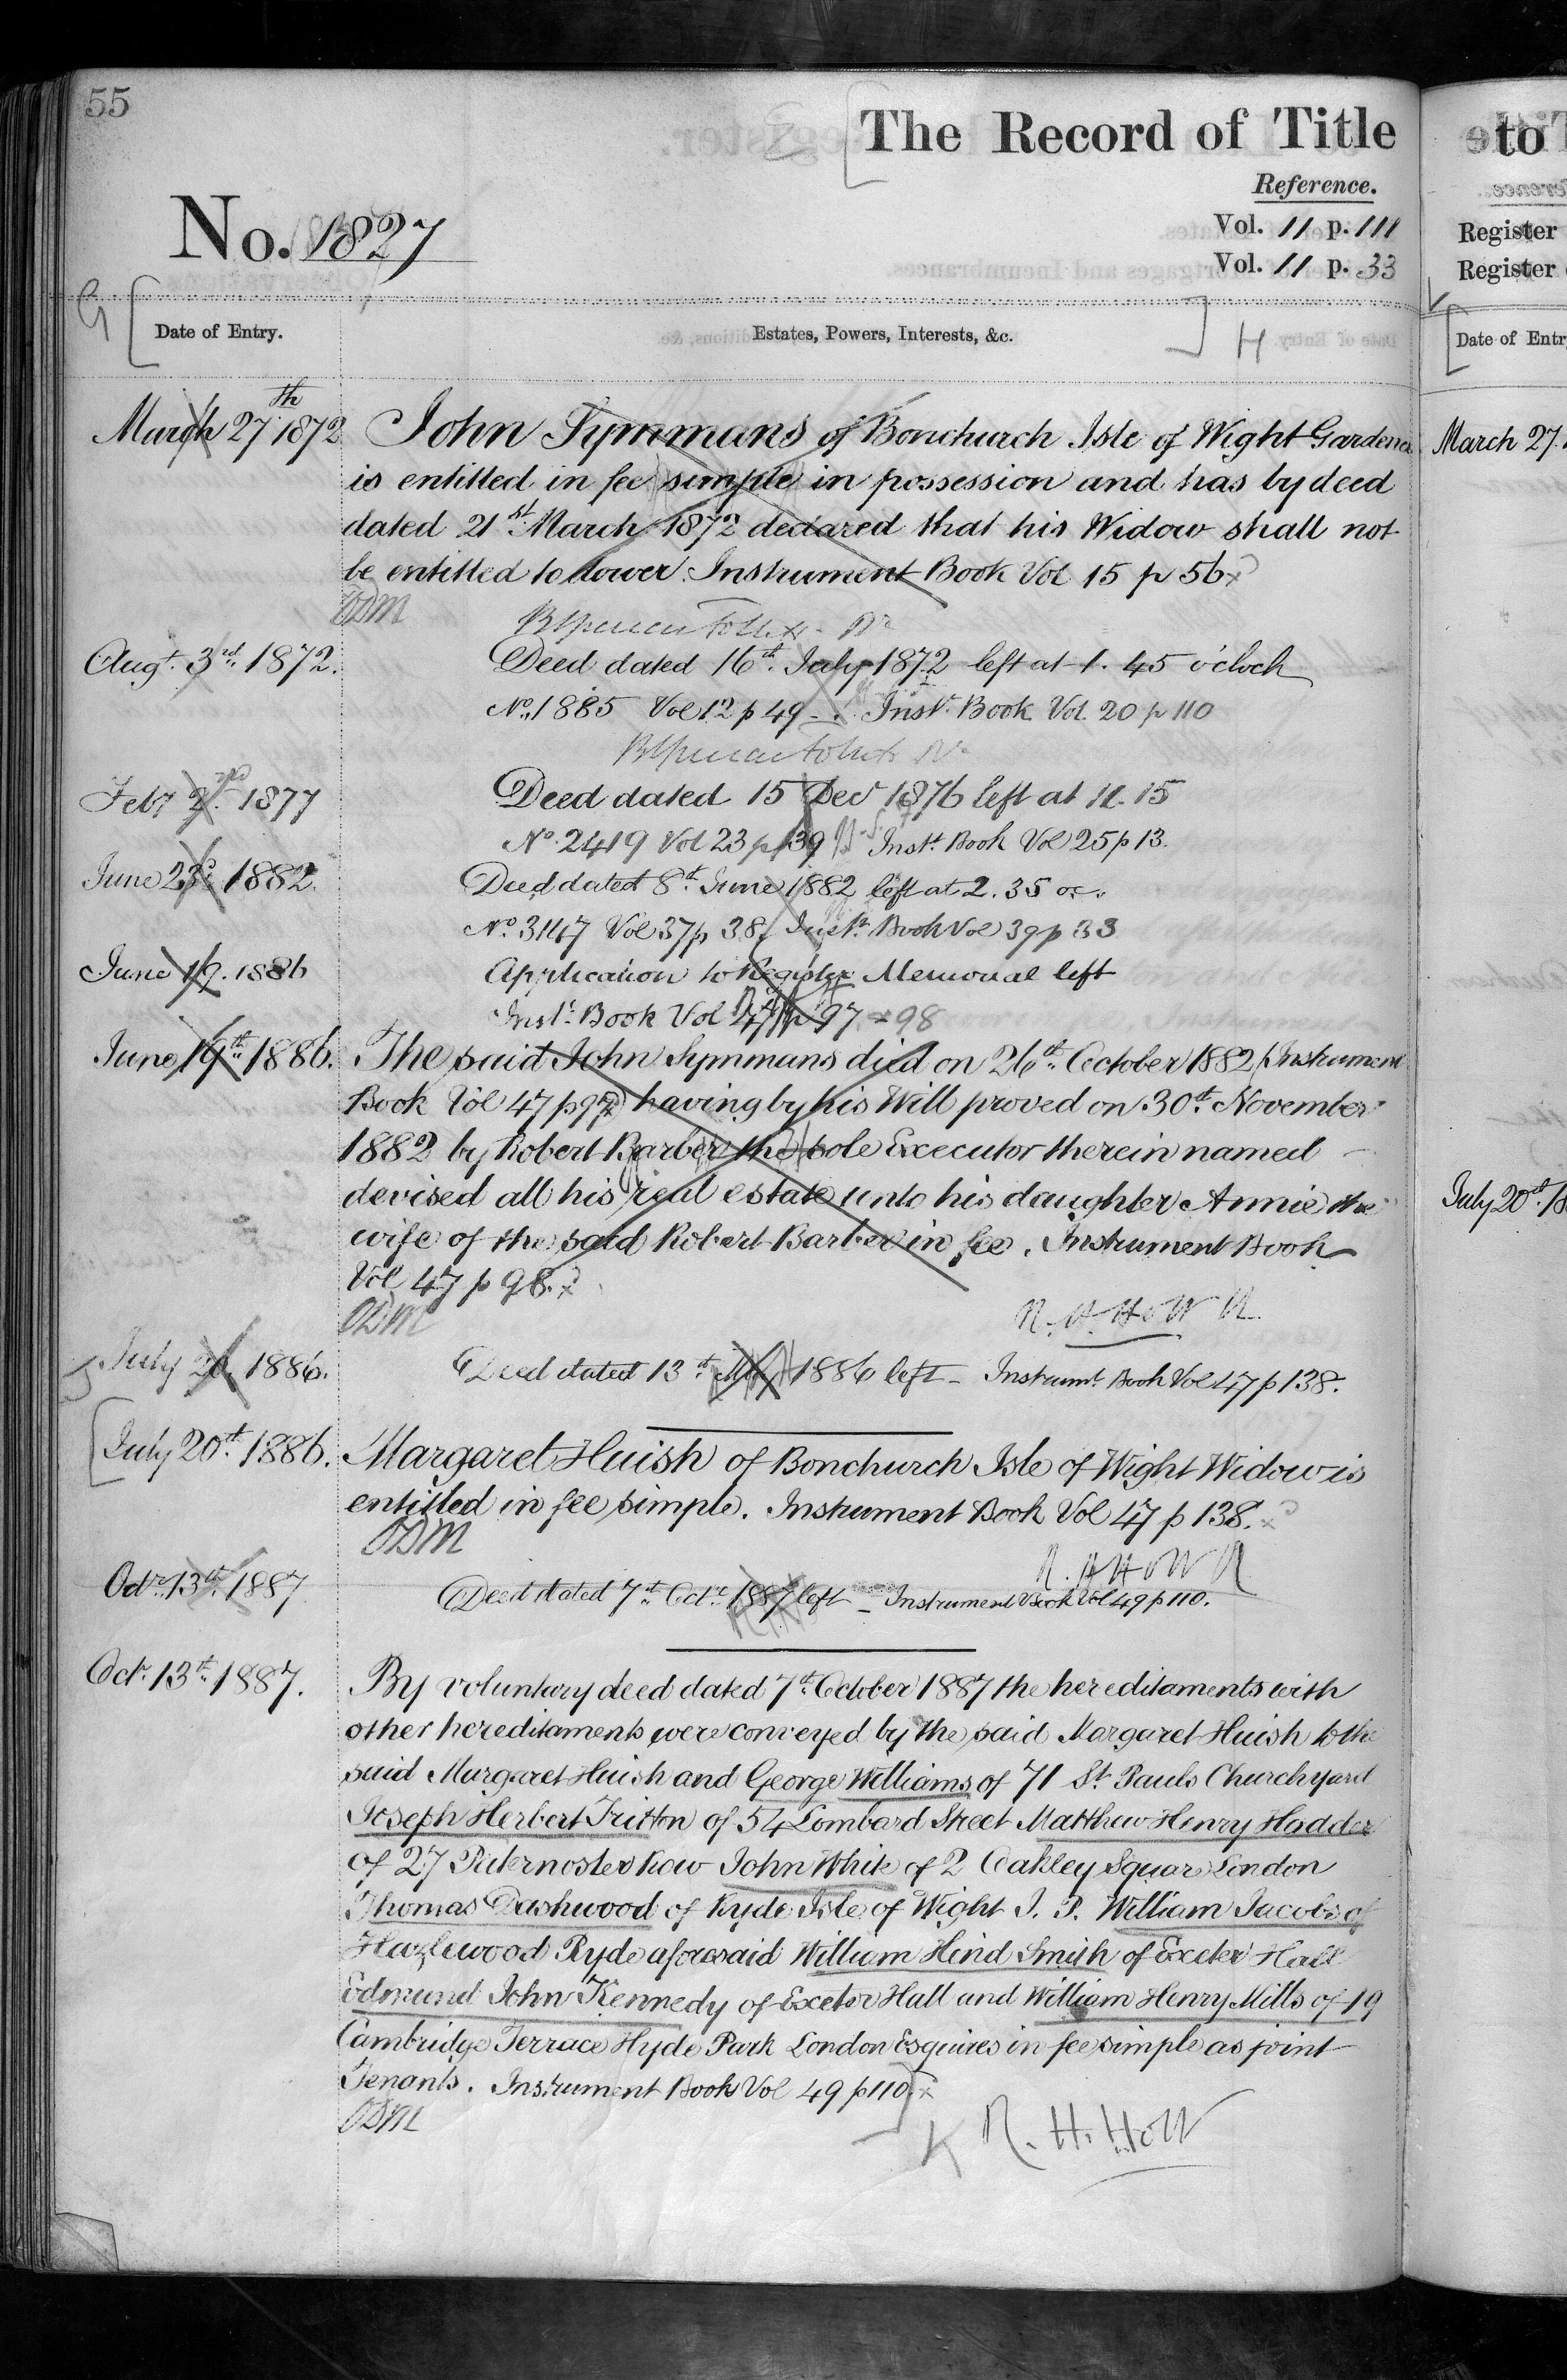 55
The Record of Title
Reference.
No. 1827
Vol. 11 p. 111
Vol. 11 p. 33
G
Date of Entry.
Estates, Powers, Interests, &c.
H
March 27th 1872
John Symmans of Bonchurch Isle of Wight Gardener
is entitled in fee simple in possession and has by deed
dated 21st March 1872 declared that his Widow shall not
be entitled to dower. Instrument Book Vol 15 p 56
ODM
Augt. 3rd. 1872.
Deed dated 16th. July 1872 left at 1. 45 o'clock
No. 1885 Vol 12 p 49 - Inst. Book Vol. 20 p 110
Feby 2nd 1877
Deed dated 15 Decr 1876 left at 11. 15
No. 2419 Vol 23 p 39 Inst. Book Vol 25 p 13.
June 23d. 1882.
Deed dated 8th. June 1882 left at 2. 35 oc.
No. 3147 Vol 37 p 38. Inst. Book Vol 39 p 33
June 19. 1886
Application to Register Memorial left
Inst. Book Vol 47 p 97 & 98
June 19th. 1886.
The said John Symmans died on 26th. October 1882 (Instrument
Book Vol 47 p 97) having by his Will proved on 30th. November
1882 by Robert Barber the sole Executor therein named
devised all his real estate unto his daughter Annie the
wife of the said Robert Barber in fee. Instrument Book
Vol 47 p 98.
ODM
R. H. HoW R.
July 20. 1886.
Deed dated 13th. 1886 left - Instrumt. Book Vol 47 p 138.
July 20th. 1886.
Margaret Huish of Bonchurch Isle of Wight Widow is
entitled in fee simple. Instrument Book Vol 47 p 138.
ODM
R. H HoW R
Octr. 13th. 1887
Deed dated 7th. Octr. 1887 left - Instrument Book Vol 49 p 110.
Oct. 13th. 1887.
By voluntary deed dated 7th. October 1887 the hereditaments with
other hereditaments were conveyed by the said Margaret Huish to the
said Margaret Huish and George Williams of 71 St. Pauls Churchyard
Joseph Herbert Tritton of 54 Lombard Street Matthew Henry Hodder
of 27 Paternoster Row John White of 2 Oakley Square London
Thomas Dashwood of Ryde Isle of Wight J. P. William Jacobs of
Hazlewood Ryde aforesaid William Hind Smith of Exeter Hall
Edmund John Kennedy of Exeter Hall and William Henry Mills of 19
Cambridge Terrace Hyde Park London Esquires in fee simple as joint
Tenants. Instrument Book Vol 49 p 110.
ODM
K R. H. HoW
to
Register
Register
Date of Entr
March 27.
July 20th.